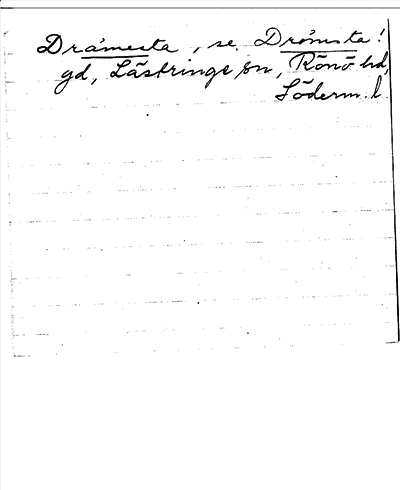 Drámesta, se Drömsta!
gd, Lästringe sn, Rönö hd,
Söderm. l.